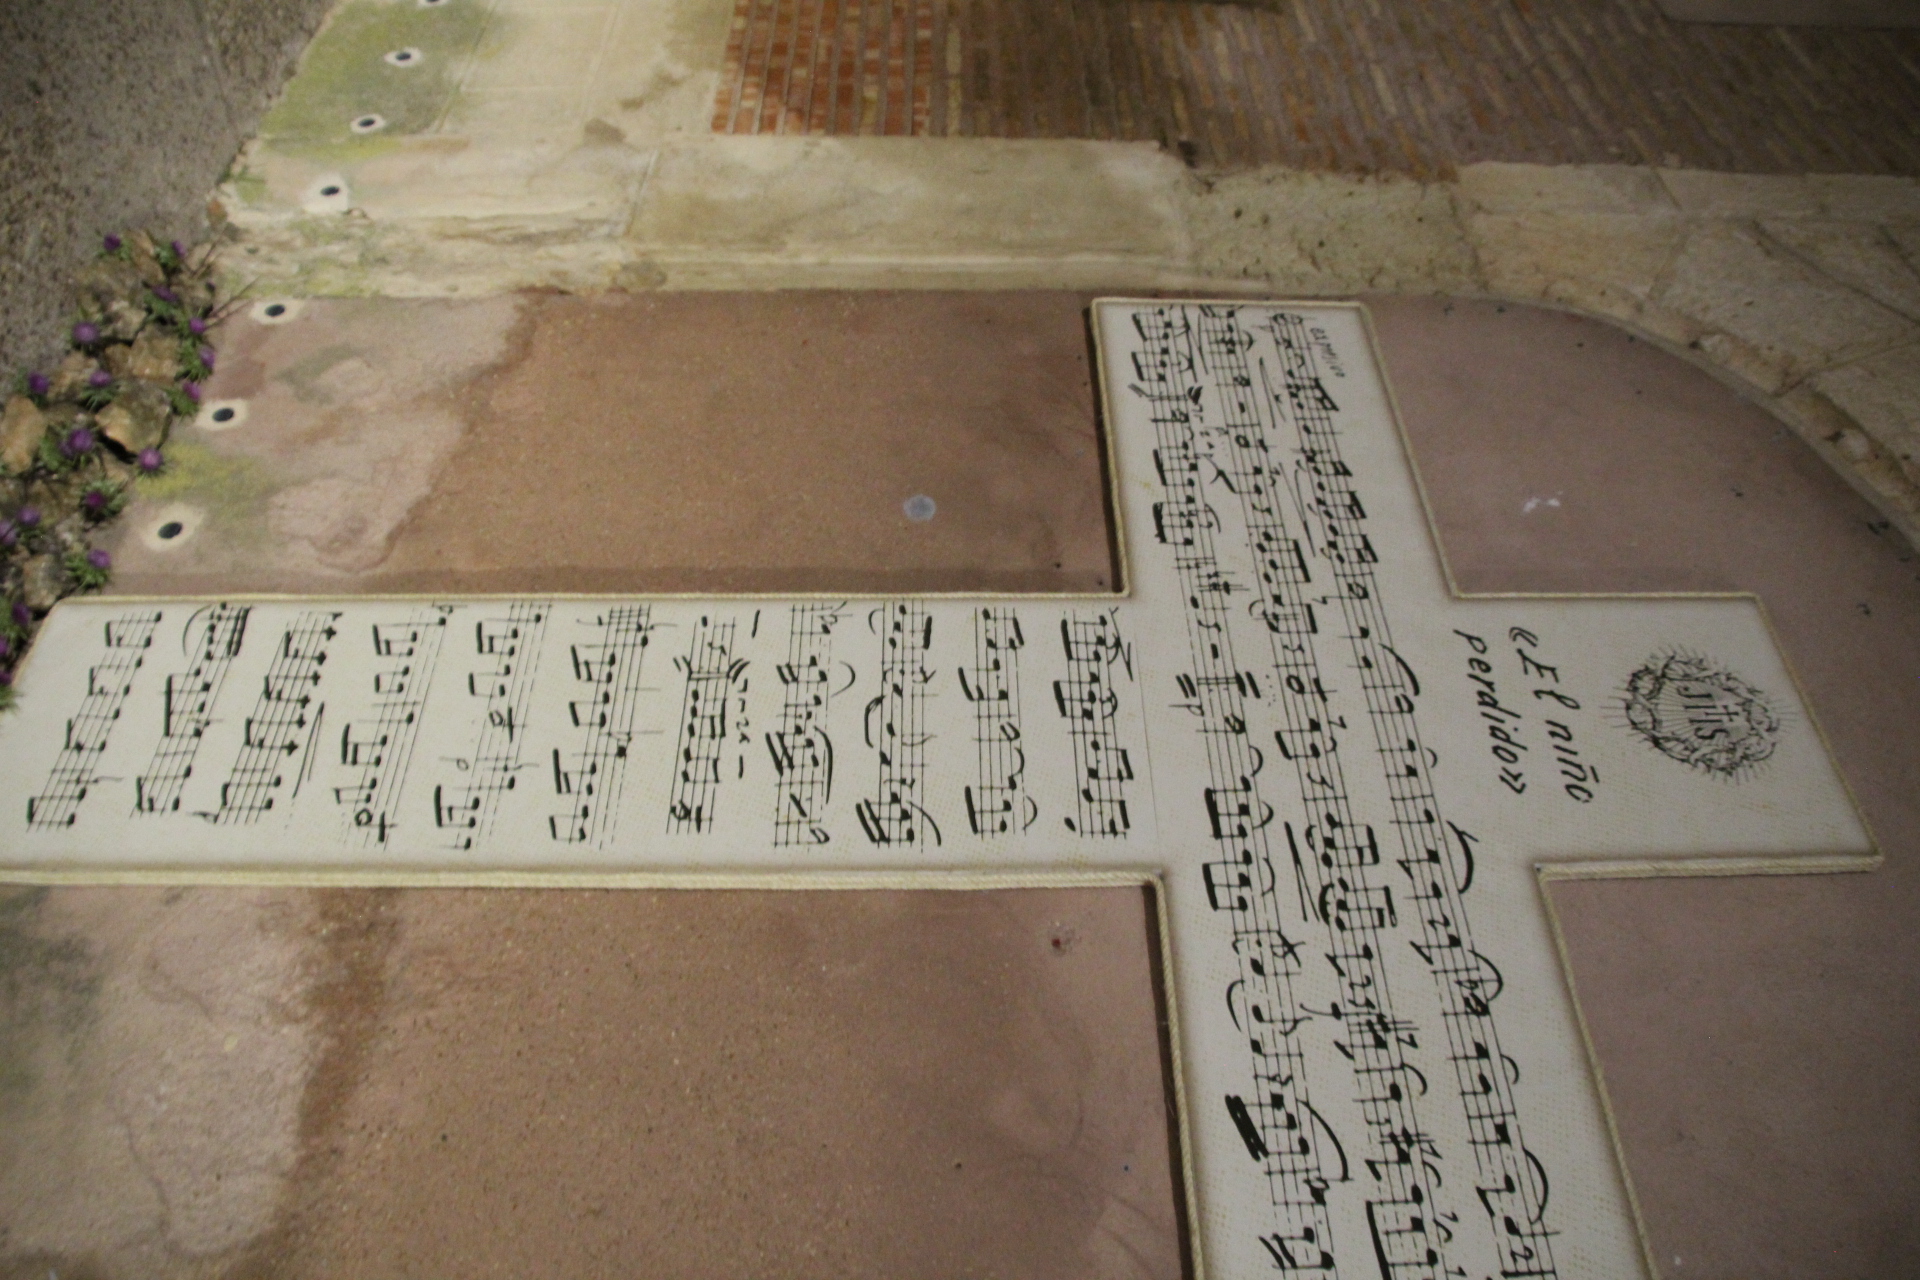 JHS
«El niño
perdido»